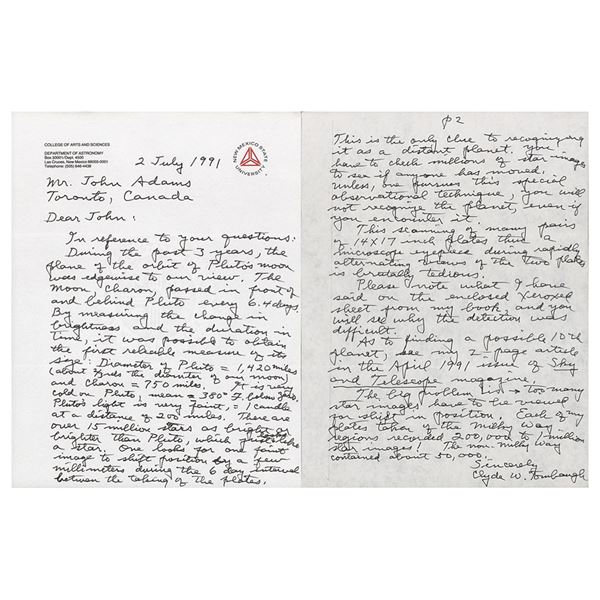 COLLEGE OF ARTS AND SCIENCES
DEPARTMENT OF ASTRONOMY
Box 30001/Dept. 4500
Las Cruces, New Mexico 88003-0001
Telephone: (505) 646-4438
NEW MEXICO STATE UNIVERSITY
2 July 1991
Mr. John Adams
Toronto, Canada
Dear John:
In reference to your questions:
During the past 3 years, the
plane of the orbit of Pluto's moon
was edgewise to our view. The
moon Charon, passed in front of
and behind Pluto every 6.4 days.
By measuring the change in
brightness and the duration in
time, it was possible to obtain
the first reliable measure of its
size: Diameter of Pluto = 1,420 miles
(about 2/3rds the diameter of our moon)
and Charon = 750 miles. It is very
cold on Pluto, mean = 350° F. below zero.
Pluto's light is very faint, = 1 candle
at a distance of 200 miles. There are
over 15 million stars as bright or
brighter than Pluto, which looks like
a star. One looks for one faint
image to shift position by a few
millimeters during the 6 day interval
between the taking of the plates.
p2
This is the only clue to recognizing
it as a distant planet, you
have to check millions of star images
to see if anyone has moved.
Unless, one pursues this special
observational technique, you will
not recognize the planet, even if
you encounter it.
This scanning of many pairs
of 14 X 17 inch plates thru a
microscope eyepiece during rapidly
alternating views of the two plates
is brutally tedious.
Please note what I have
said on the enclosed Xeroxed
sheet from my book, and you
will see why the detection was
difficult.
As to finding a possible 10th
planet, see my 2-page article
in the April 1991 issue of Sky
and Telescope magazine.
The big problem is → too many
star images have to be viewed
for shift in position. Each of my
plates taken of the Milky Way
regions recorded 200,000 to 1 million
star images! The non-milky way
contained about 50,000.
Sincerely
Clyde W. Tombaugh